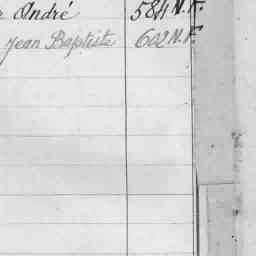 André 584 N.F.
Jean Baptiste 602 N.F.